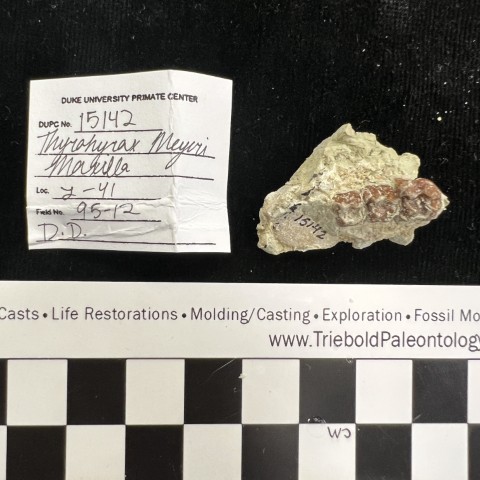 DUKE UNIVERSITY PRIMATE CENTER
DUPC No. 15142
Thyrohyrax Meyeri
Maxilla
Loc. L-41
Field No. 95-12
D.D.
15142
Casts • Life Restorations • Molding/Casting • Exploration • Fossil Mo
www.TrieboldPaleontology
CM